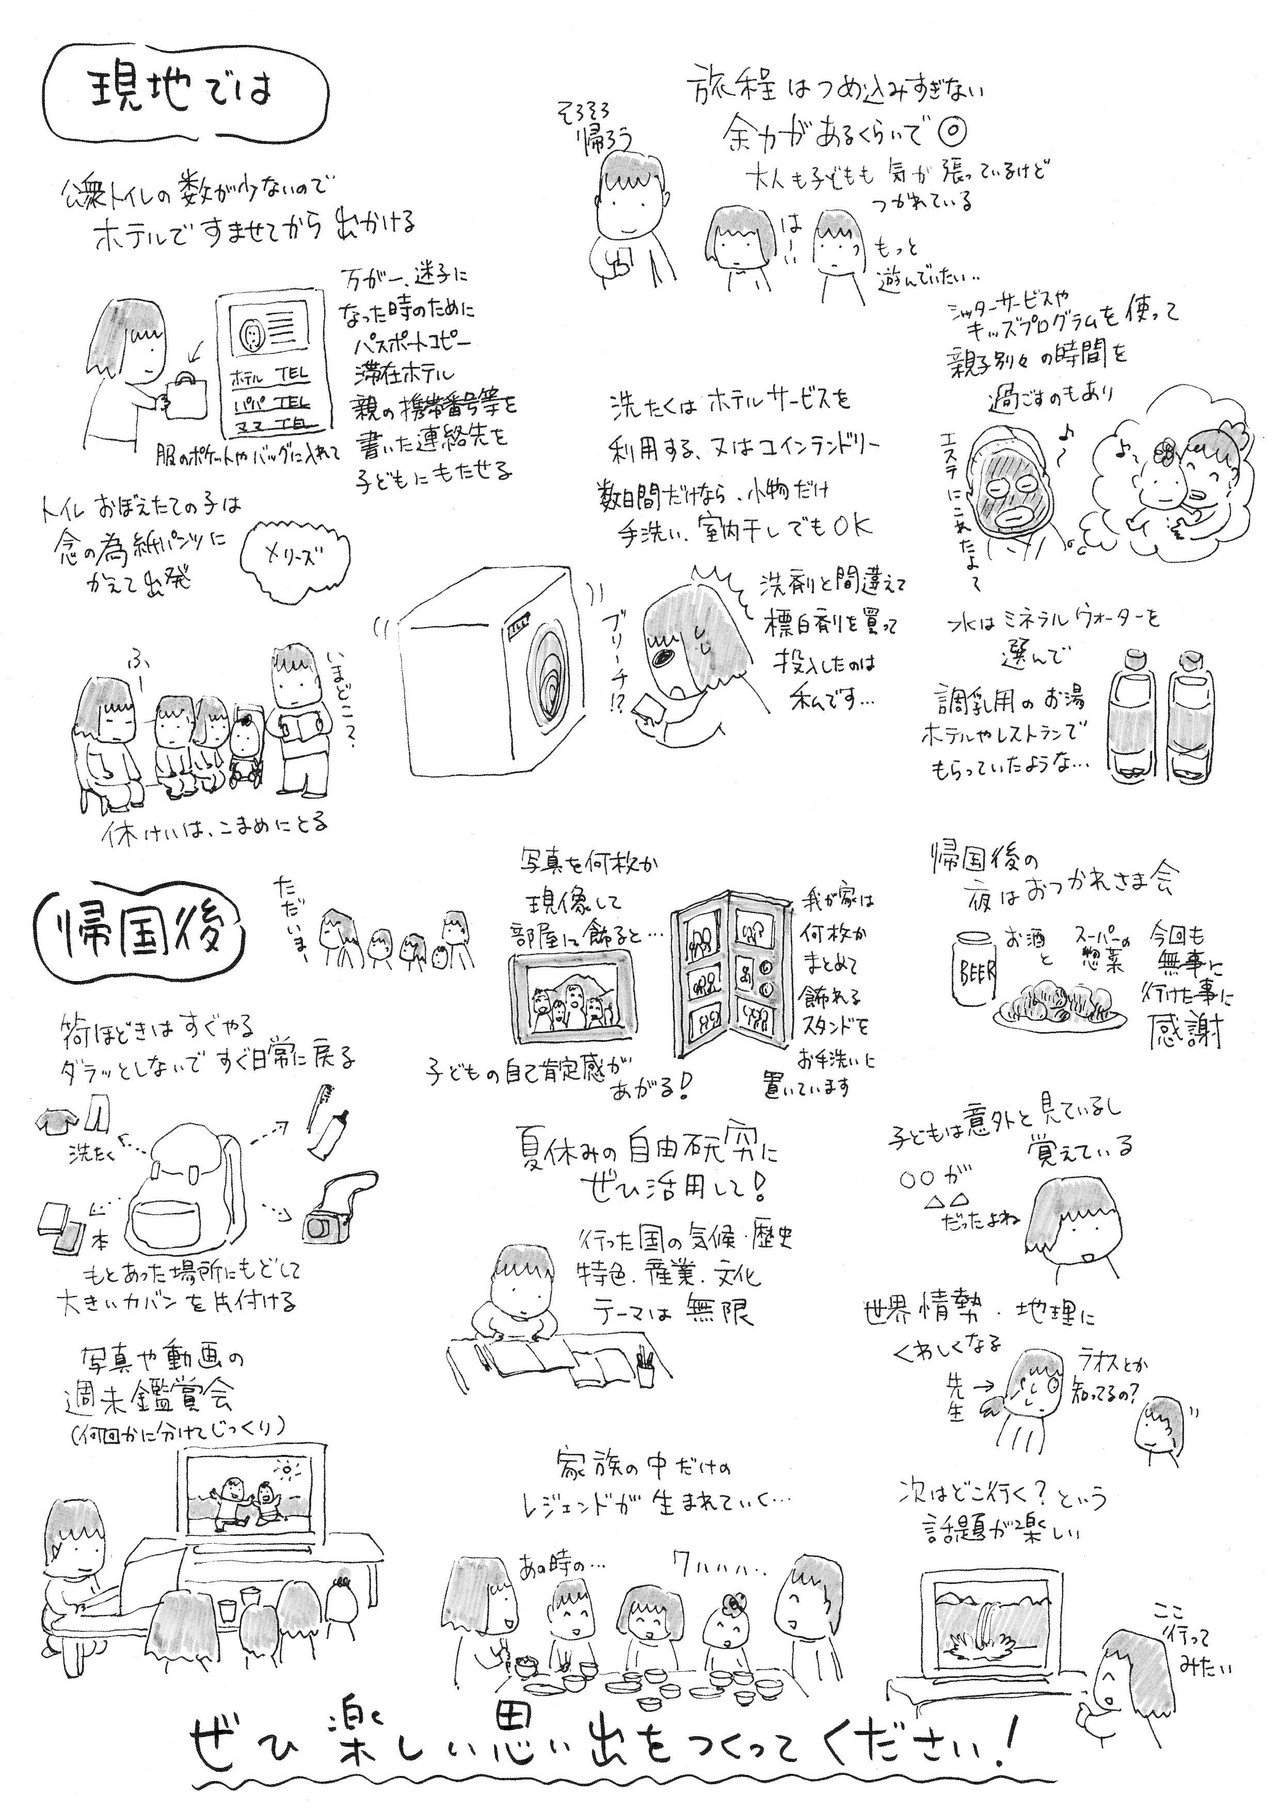 現地では
公衆トイレの数が少ないので
ホテルですませてから出かける
万が一、迷子に
なった時のために
パスポートコピー
滞在ホテル
親の携帯番号等を
書いた連絡先を
子どもにもたせる
ホテル TEL
パパ TEL
ママ TEL
服のポケットやバッグに入れて
トイレおぼえたての子は
念の為紙パンツに
かえて出発
メリーズ
ふぅ
いまどこ?
休けいは、こまめにとる
旅程はつめ込みすぎない
余力があるくらいで◎
大人も子どもも気が張っているけど
つかれている
そろそろ
帰ろう
はーい
もっと
遊んでいたい‥
洗たくはホテルサービスを
利用する、又はコインランドリー
数日間だけなら、小物だけ
手洗い、室内干しでもOK
ブリーチ!?
洗剤と間違えて
漂白剤を買って
投入したのは
私です…
シッターサービスや
キッズプログラムを使って
親子別々の時間を
過ごすのもあり
エステにこれたよて
水はミネラルウォーターを
選んで
調乳用のお湯
ホテルやレストランで
もらっていたような…
帰国後
ただいまー
荷ほどきはすぐやる
ダラッとしないですぐ日常に戻る
洗たく
本
もとあった場所にもどして
大きいカバンを片付ける
写真や動画の
週末鑑賞会
(何回かに分けてじっくり)
写真を何枚か
現像して
部屋に飾ると…
子どもの自己肯定感が
あがる!
我が家は
何枚か
まとめて
飾れる
スタンドを
お手洗いに
置いています
夏休みの自由研究に
ぜひ活用して!
行った国の気候・歴史
特色、産業、文化
テーマは無限
家族の中だけの
レジェンドが生まれていく…
あの時の…
ワハハハ‥
帰国後の
夜はおつかれさま会
BEER
お酒
と
スーパーの
惣菜
今回も
無事に
行けた事に
感謝
子どもは意外と見ているし
覚えている
○○が
△△
だったよね
世界情勢・地理に
くわしくなる
先生→
ラオスとか
知ってるの?
次はどこ行く?という
話題が楽しい
ここ
行って
みたい
ぜひ楽しい思い出をつくってください!